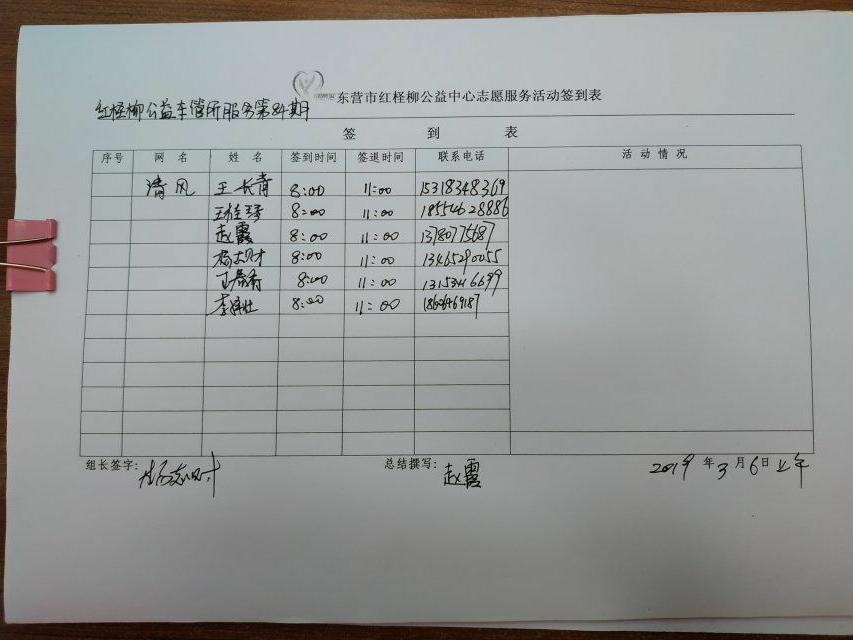 东营市红柽柳公益中心志愿服务活动签到表
红柽柳公益车管所服务第84期
签 到 表
序号 网名 姓名 签到时间 签退时间 联系电话 活动情况
清风 王长青 8:00 11:00 15318348369
8:00 11:00 18554628886
赵霞 8:00 11:00 13780775687
8:00 11:00 13465290055
8:00 11:00
8:00 11:00
组长签字: 总结撰写: 赵霞 2019年3月6日上午